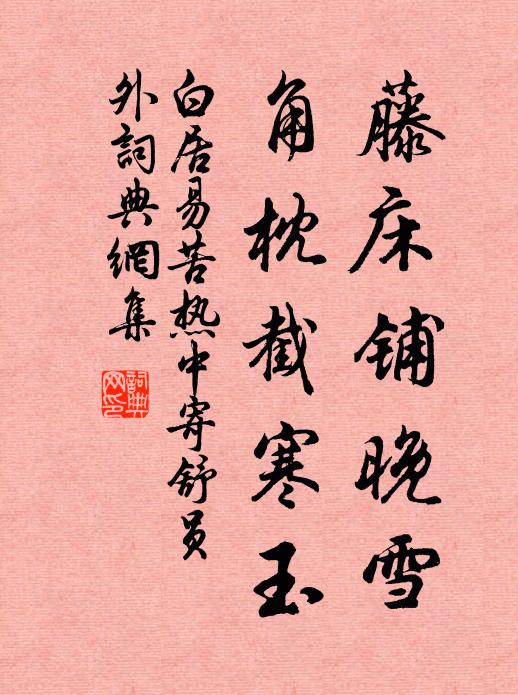 藤床铺晚雪
角枕截寒玉
白居易苦热中寄舒员
外詞典網集
詞典
网印